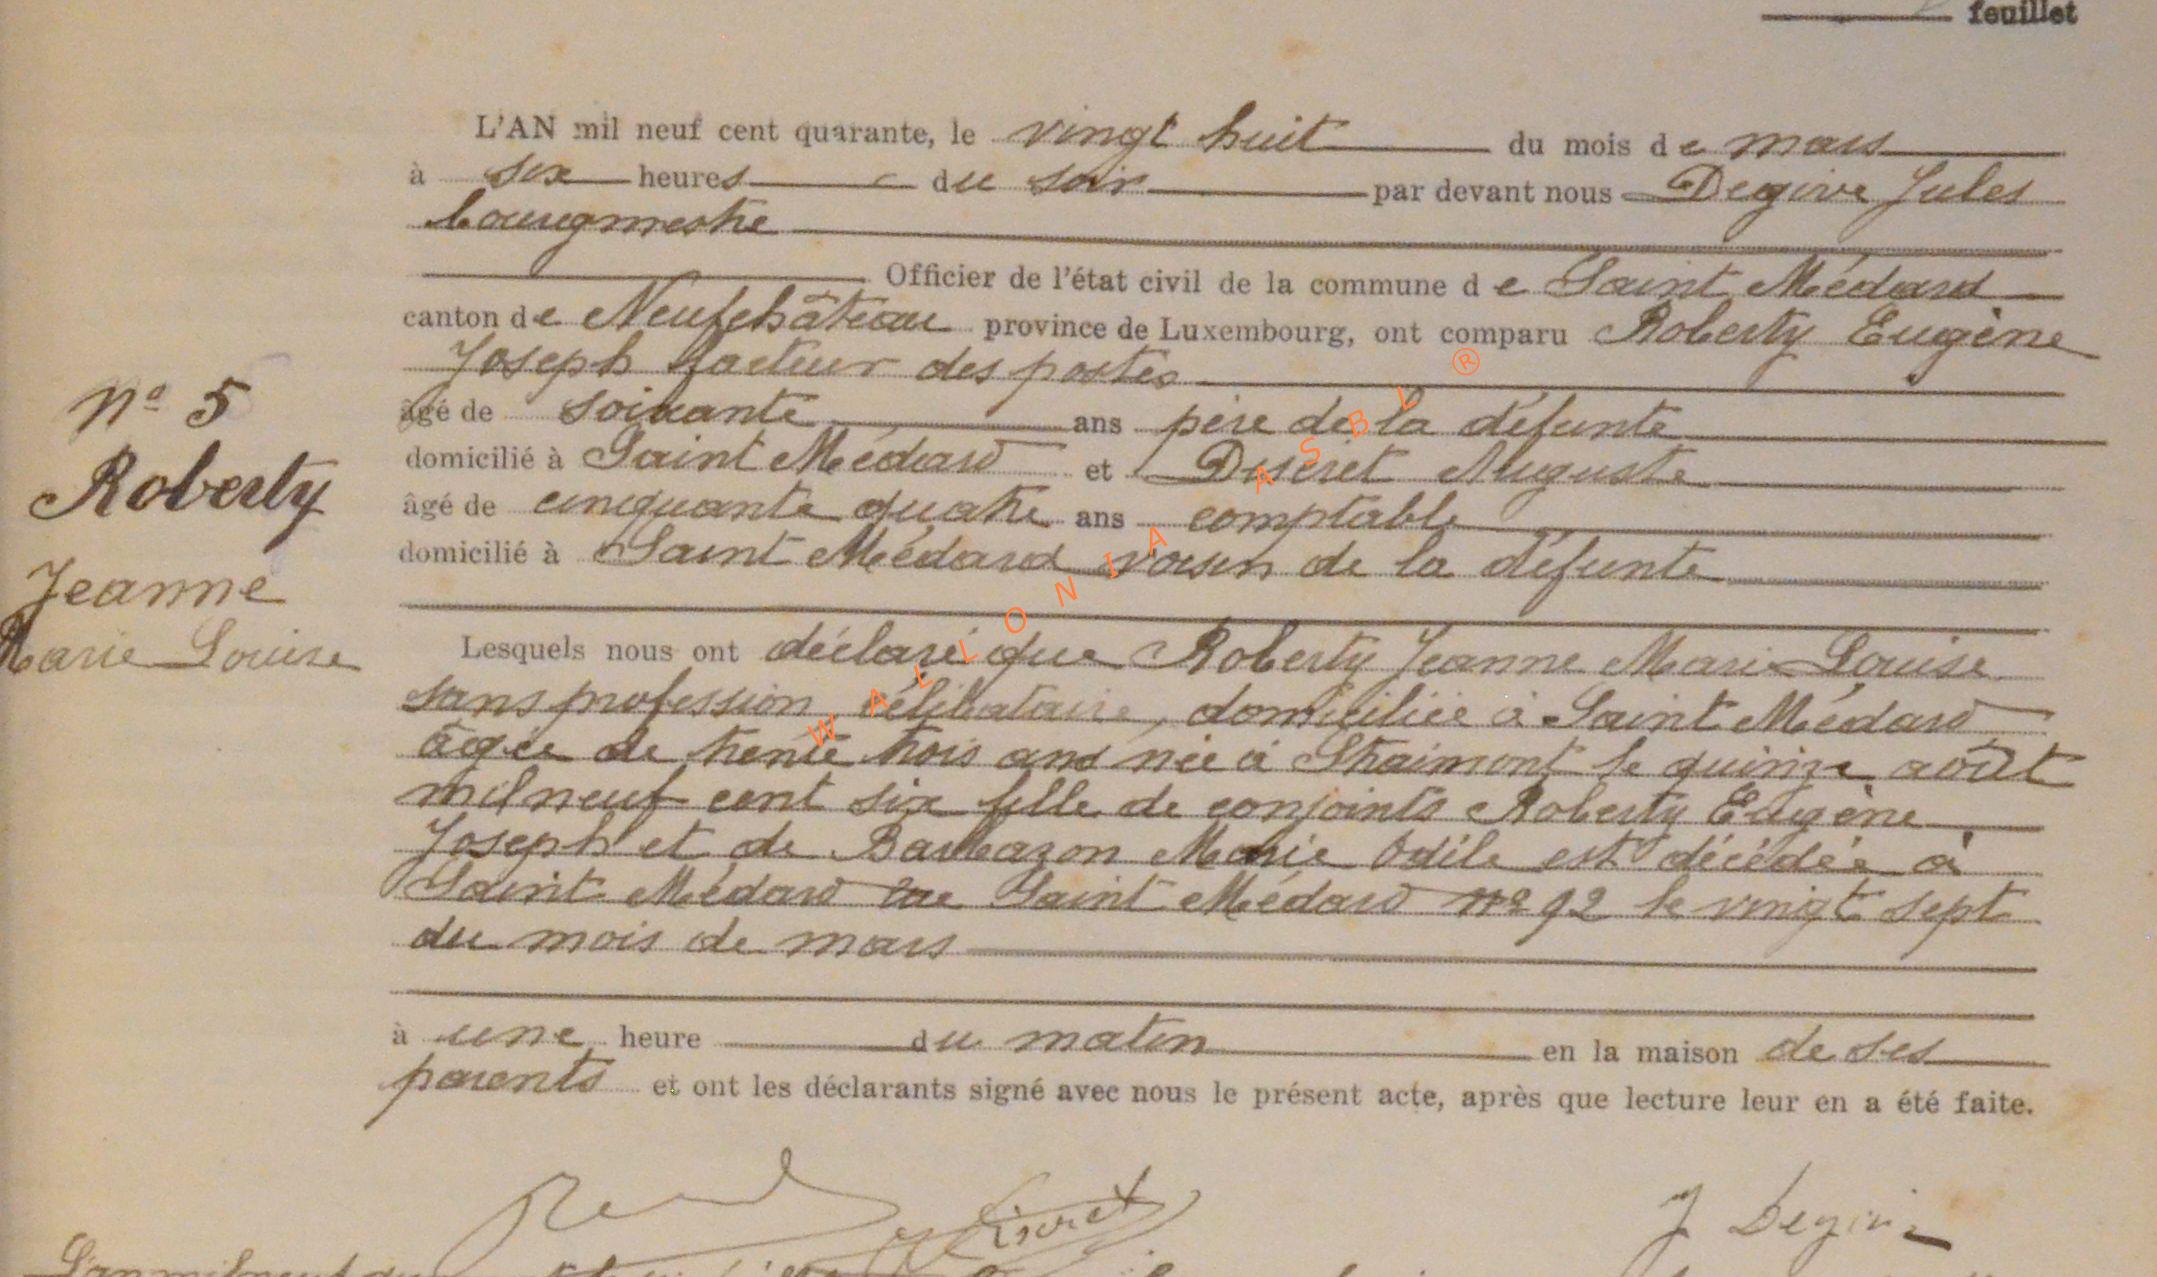 feuillet
L'AN mil neuf cent quarante, le vingt huit du mois de mars
à six heures du soir par devant nous Degive Jules
bourgmestre
Officier de l'état civil de la commune de Saint Médard
canton de Neufchâteau province de Luxembourg, ont comparu Roberty Eugène
Joseph facteur des postes
âgé de soixante ans père de la défunte
domicilié à Saint Médard et Discret Auguste
âgé de cinquante quatre ans comptable
domicilié à Saint Médard voisin de la défunte
N° 5
Roberty
Jeanne
Marie Louise
Lesquels nous ont déclaré que Roberty Jeanne Marie Louise
sans profession célibataire, domiciliée à Saint Médard
âgée de trente trois ans née à Straimont le quinze août
mil neuf cent six fille de conjoints Roberty Eugène
Joseph et de Barbazon Marie Odile est décédée à
Saint Médard rue Saint Médard n° 92 le vingt sept
du mois de mars
à une heure du matin en la maison de ses
parents et ont les déclarants signé avec nous le présent acte, après que lecture leur en a été faite.
Discret J Degive
WALLONIA ASBL ®